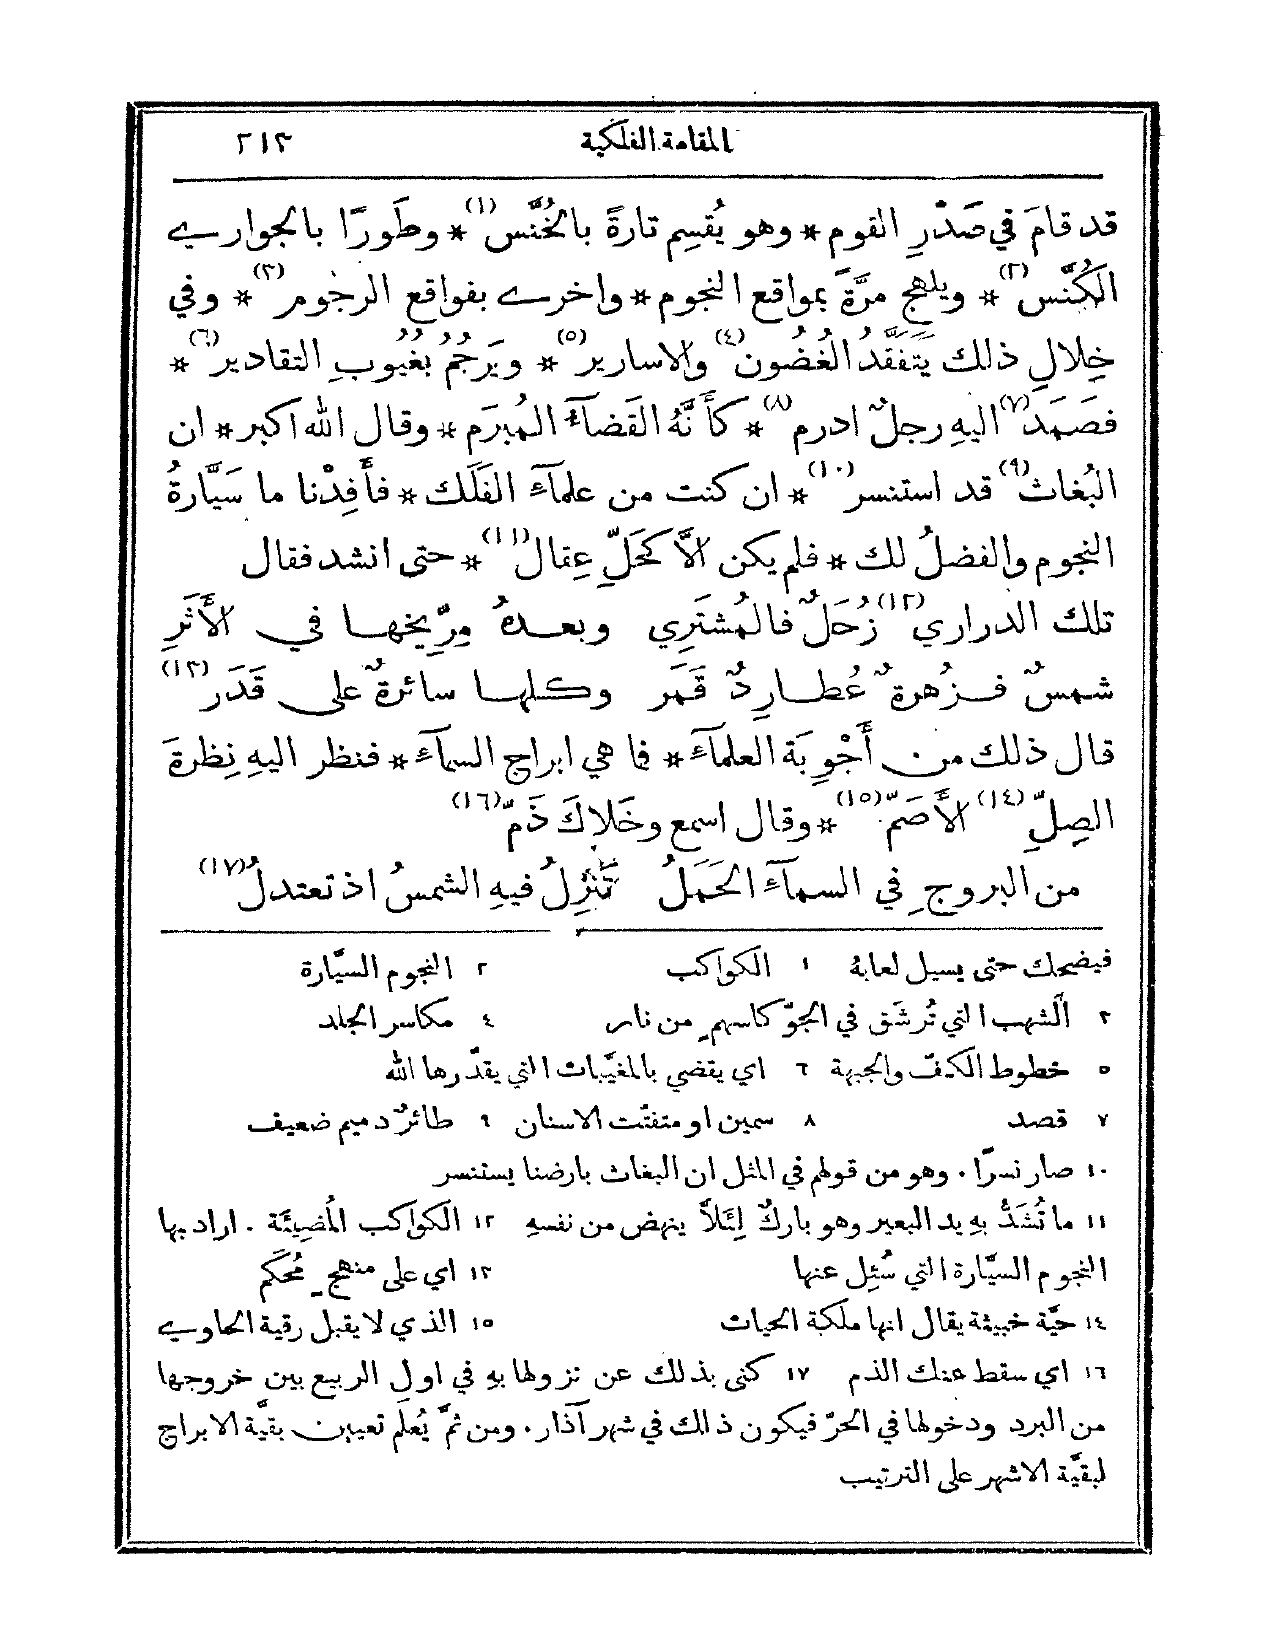 المقامة الفلكية ٢١٣
قد قامَ في صَدْرِ القوم * وهو يُقسِم تارةً بالخُنَّس(١) * وطَورًا بالجواري
الكُنَّس(٢) * ويلهج مرَّةً بمواقع النجوم * واخرى بفواقع الرجوم(٣) * وفي
خِلالِ ذلك يَتفَقَّدُ الغُضُونَ(٤) والاسارير(٥) * ويَرجُمُ بغُيوبِ التقادير(٦) *
فصَمَدَ(٧) اليهِ رجلٌ ادرم(٨) * كأَنَّهُ القَضاءُ المُبرَم * وقال الله اكبر * ان
البُغاثَ(٩) قد استنسر(١٠) * ان كنت من علمآءِ الفَلَك * فأَفِدْنا ما سَيَّارةُ
النجوم والفضلُ لك * فلم يكن الَّا كحَلِّ عِقال(١١) * حتى انشد فقال
تلك الدراري(١٢) زُحَلٌ فالمُشتَرِي وبعدهُ مِرِّيخها في الأَثَرِ
شمسٌ فزُهرةٌ عُطارِدٌ قَمَر وكلها سائرةٌ على قَدَر(١٣)
قال ذلك من أَجْوِبَة العلمآء * فما هي ابراج السمآء * فنظر اليهِ نِظرةَ
الصِلِّ(١٤) الأَصَمّ(١٥) * وقال اسمع وخَلَاكَ ذَمّ(١٦)
من البروج في السمآءِ الحَمَلُ تَنْزِلُ فيهِ الشمسُ اذ تعتدلُ(١٧)
فيضحك حتى يسيل لعابهُ ١ الكواكب ٢ النجوم السيَّارة
٣ الشهب التي تُرشَق في الجوّ كاسهم من نار ٤ مكاسر الجلد
٥ خطوط الكفّ والجبهة ٦ اي يقضي بالمغيَّبات التي يقدّرها الله
٧ قصد ٨ سمين او متفتّت الاسنان ٩ طائرٌ دميم ضعيف
١٠ صار نسرًا. وهو من قولهم في المثل ان البغاث بارضنا يستنسر
١١ ما تُشَدُّ بهِ يد البعير وهو باركٌ لِئَلَّا ينهض من نفسهِ ١٢ الكواكب المُضِيئَة. اراد بها
النجوم السيَّارة التي سُئِل عنها ١٣ اي على منهج مُحكَم
١٤ حيَّة خبيثة يقال انها ملكة الحيات ١٥ الذي لا يقبل رقية الحاوي
١٦ اي سقط عنك الذم ١٧ كنى بذلك عن نزولها بهِ في اول الربيع بين خروجها
من البرد ودخولها في الحرّ فيكون ذلك في شهر آذار. ومن ثَمَّ يُعلَم تعيين بقيَّة الابراج
لبقيَّة الاشهر على الترتيب